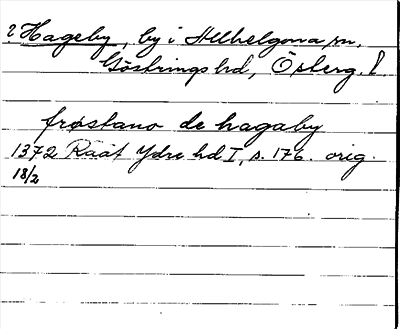 ? Hageby, by i Allhelgona sn,
Göstrings hd, Österg. l
frøstano de hagaby
1372 Raät Ydre hd I, s. 176. orig.
18/2